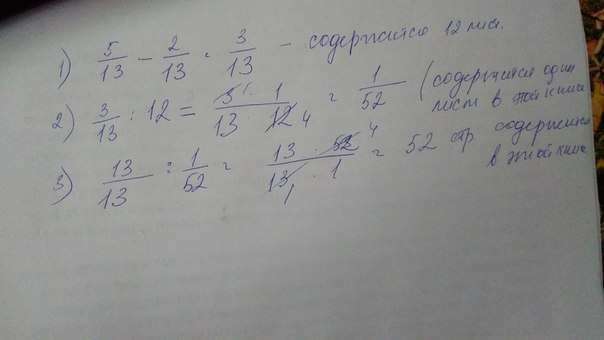 1) 5/13 - 2/13 = 3/13 - содержится 12 лист.
2) 3/13 : 12 = 3 · 1 / 13 · 12 4 = 1/52 (содержится один
лист в этой книге
3) 13/13 : 1/52 = 13 · 52 4 / 13 1 · 1 = 52 стр содержится
в этой книге